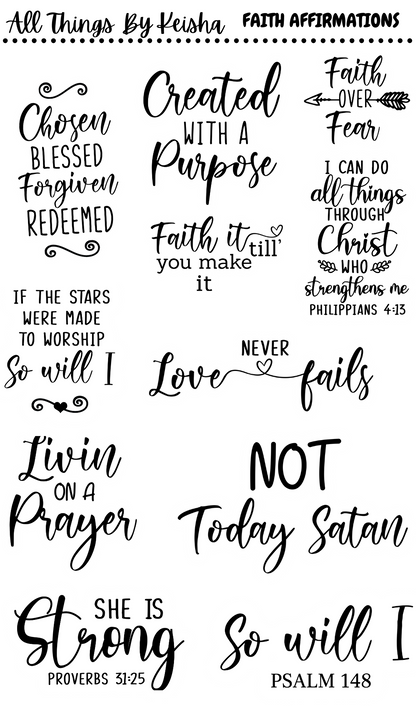 All Things By Keisha FAITH AFFIRMATIONS
Chosen
BLESSED
Forgiven
REDEEMED
Created
WITH A
Purpose
Faith
OVER
Fear
Faith it till'
you make
it
I CAN DO
all things
THROUGH
Christ
WHO
strengthens me
PHILIPPIANS 4:13
IF THE STARS
WERE MADE
TO WORSHIP
So will I
NEVER
Love fails
Livin
ON A
Prayer
NOT
Today Satan
SHE IS
Strong
PROVERBS 31:25
So will I
PSALM 148